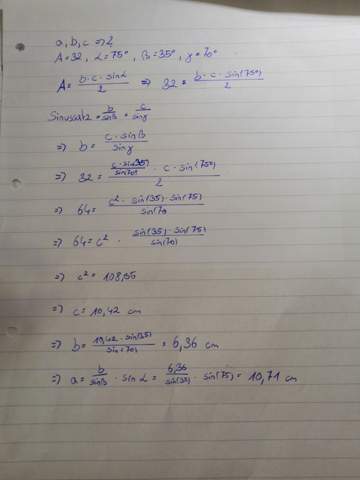 a, b, c => ?
A=32, α=75°, β=35°, γ=70°
A = b·c·sinα / 2 => 32 = b·c·sin(75°) / 2
Sinussatz = b/sinβ = c/sinγ
=> b = c·sinβ / sinγ
=> 32 = c·sin(35)/sin(70) · c · sin(75°) / 2
=> 64 = c²·sin(35)·sin(75) / sin(70
=> 64 = c² · sin(35)·sin(75) / sin(70)
=> c² = 108,55
=> c = 10,42 cm
=> b = 10,42·sin(35) / sin(70) = 6,36 cm
=> a = b/sinβ · sin α = 6,36/sin(35) · sin(75) = 10,71 cm